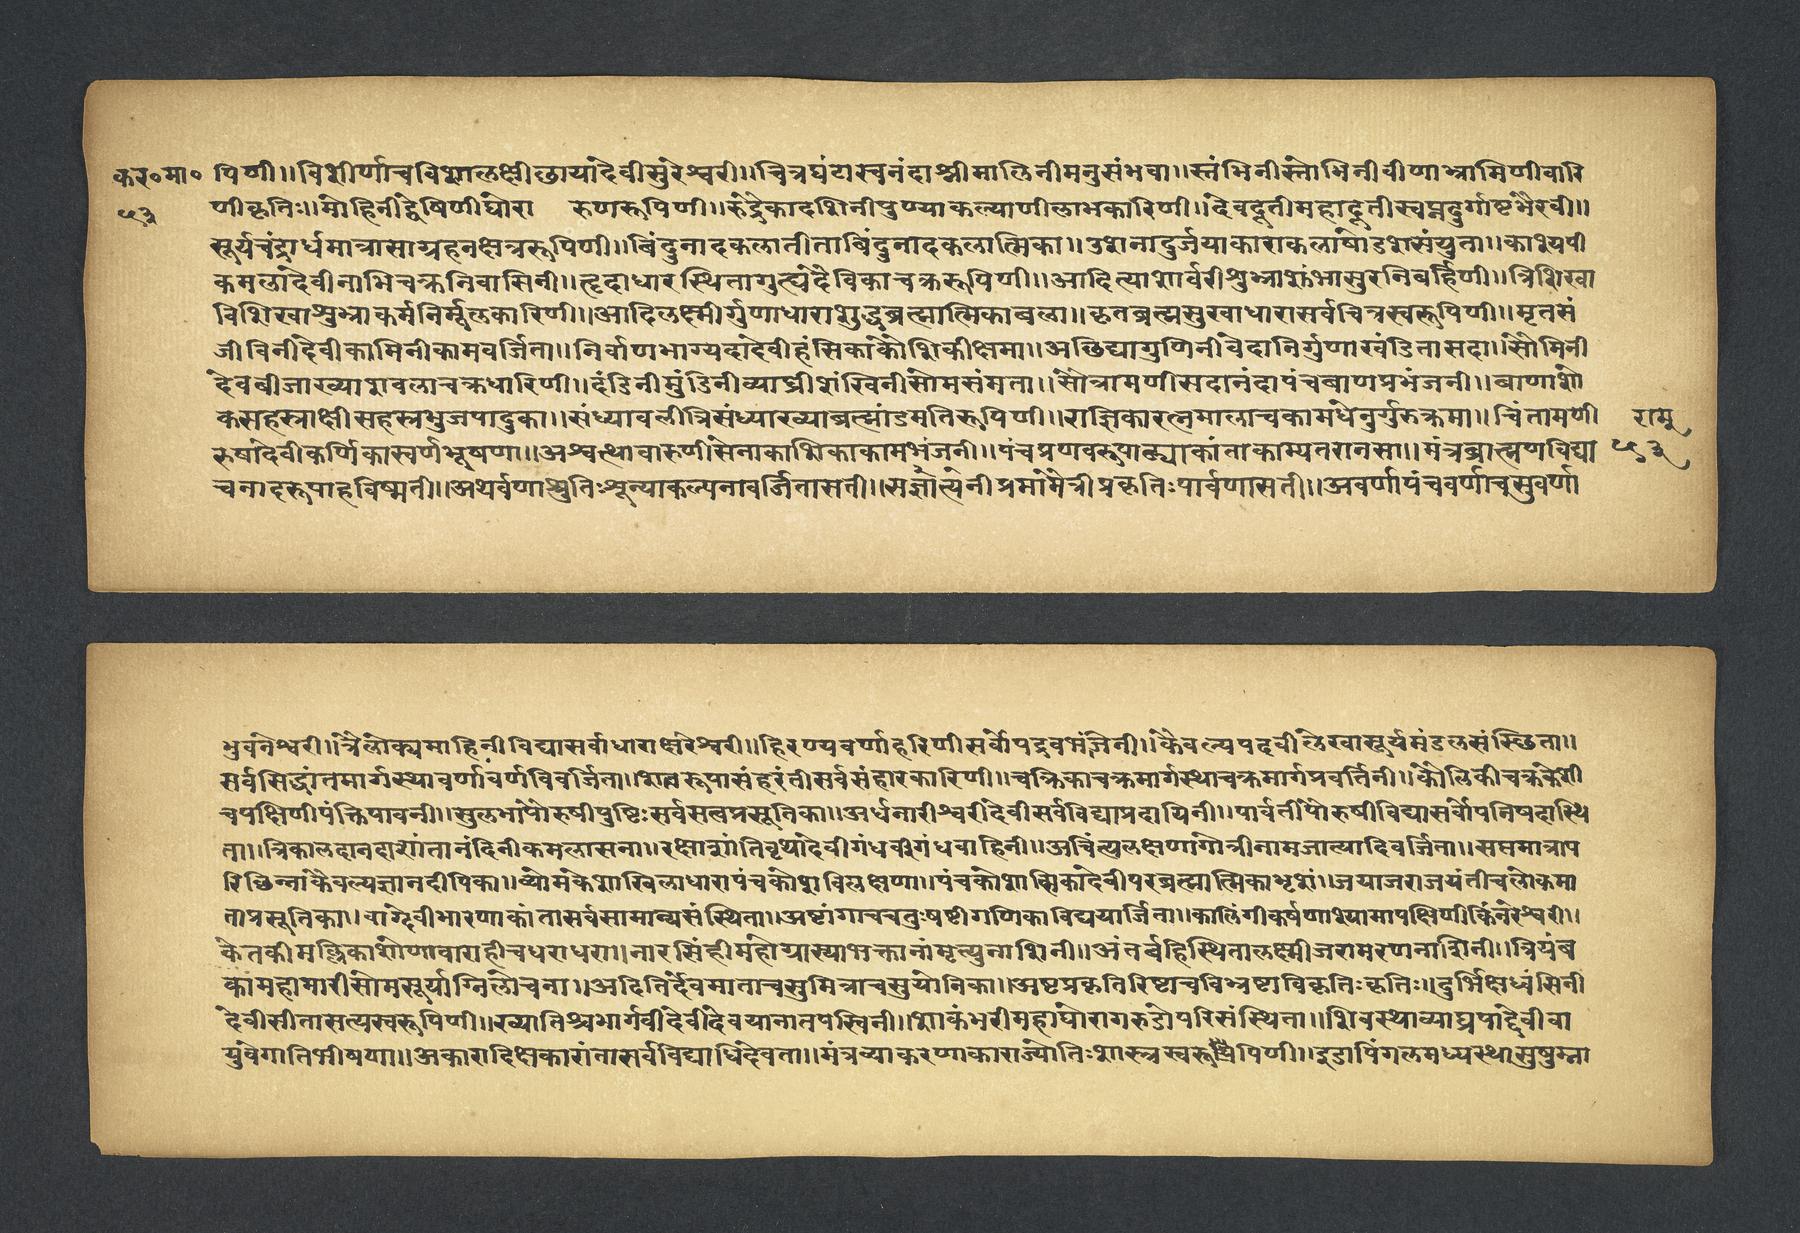 कर॰मा॰ पिणी॥विशीर्णाचविशालक्षीछायादेवीसुरेश्वरी॥चित्रघंटास्वनंदाश्रीमालिनीमनुसंभवा॥स्तंभिनीस्तोभिनीवीणाभ्रामिणीवारि
५३ णीकृतिः॥मोहिनीद्वेषिणीघोरा रुणरूपिणी॥रुद्रैकादशिनीपुण्याकल्याणीलाभकारिणी॥देवदूतीमहादूतीस्वप्नदुर्गाष्टभैरवी॥
सूर्यचंद्रार्धमात्रासाग्रहनक्षत्ररूपिणी॥बिंदुनादकलातीताबिंदुनादकलात्मिका॥उशनादुर्जयाकाराकलाषोडशसंयुता॥काश्यपी
कमलादेवीनाभिचक्रनिवासिनी॥हृदाधारस्थितागुह्यदैविकाचक्ररूपिणी॥आदित्याशार्वरीशुभ्राशुंभासुरनिबर्हिणी॥त्रिशिखा
विशिखाशुभ्राकर्मनिर्मूलकारिणी॥आदिलक्ष्मीर्गुणाधाराशुद्धब्रह्मात्मिकाबला॥कृतब्रह्मसुखाधारासर्वचित्रस्वरूपिणी॥मृतसं
जीविनीदेवीकामिनीकामवर्जिता॥निर्वाणभाग्यदादेवीहंसिकाकौशिकीक्षमा॥अछिद्यागुणिनीवेदानिर्गुणाखंडितासदा॥सोमिनी
देवबीजाख्याशबलाचक्रधारिणी॥दंडिनीमुंडिनीव्याघ्रीशंखिनीसोमसंमता॥सौत्रामणीसदानंदापंचबाणप्रभंजनी॥बाणाशो
कसहस्राक्षीसहस्रभुजपादुका॥संध्याबलीत्रिसंध्याख्याब्रह्मांडमतिरूपिणी॥राज्ञिकारत्नमालाचकामधेनुर्गुरुक्रमा॥चिंतामणी राम
रुषादेवीकर्णिकास्वर्णभूषणा॥अश्वत्थावारुणीसेनाकाशिकाकामभंजनी॥पंचप्रणवरूपाख्याकांताकाम्यतरानसा॥मंत्रब्राह्मणविद्या ५३
चनादरूपाहविष्मती॥अथर्वणाश्रुतिःशून्याकल्पनावर्जितासती॥सज्ञोत्पेनीप्रमामैत्रीप्रकृतिःपार्वणासती॥अवर्णापंचवर्णाचसुवर्णा
भुवनेश्वरी।त्रैलोक्यमोहिनीविद्यासर्वाधाराक्षरेश्वरी॥हिरण्यवर्णाहरिणीसर्वोपद्रवभंजिनी॥कैवल्यपदवीलेखासूर्यमंडलसंस्छिता॥
सर्वसिद्धांतमार्गस्थावर्णावर्णविवर्जिता॥शिवरूपासंहरंतीसर्वसंहारकारिणी॥चक्रिकाचक्रमार्गस्थाचक्रमार्गप्रवर्तिनी॥कौलिकीचक्रकेशी
चपक्षिणीपंक्तिपावनी॥सुलभापौरुषीपुष्टिःसर्वसत्वप्रसूतिका॥अर्धनारीश्वरीदेवीसर्वविद्याप्रदायिनी॥पार्वतीपौरुषीविद्यासर्वोपनिषदास्थि
ता॥त्रिकालदानदाशांतानंदिनीकमलासना॥रक्षाशांतिवृथादेवीगंधर्वीगंधवाहिनी॥अचिंत्यलक्षणागोत्रीनामजात्यादिवर्जिता॥सप्तमात्राप
रिछिन्नाकैवल्यज्ञानदीपिका॥व्योमकेशाखिलाधारापंचकोशविलक्षणा॥पंचकोशात्मिकादेवीपरब्रह्मात्मिकाभृशं॥जयाजराजयंतीचलोकमा
ताप्रसूतिका॥वाग्देवीभारणाकांतासर्वसामान्यसंस्थिता॥अष्टांगाचचतुःषष्टीगणिकाविद्ययार्जिता॥कालिंगीकर्षणाश्यामापक्षिणीकिंनरेश्वरी॥
केतकीमल्लिकाशोणावाराहीचधराधरा॥नारसिंहीमहोग्रास्याभक्तानांमृत्युनाशिनी॥अंतर्बहिस्थितालक्ष्मीजरामरणनाशिनी॥त्रियंब
कामहामारीसोमसूर्याग्निलोचना॥अदितिर्देवमाताचसुमित्राचसुयोनिका॥अष्टप्रकृतिरिष्टाचविभ्रष्टाविकृतिःकृतिः॥दुर्भिक्षध्वंसिनी
देवीसीतासत्यस्वरूपिणी॥ख्यातिश्चभार्गवीदेवीदेवयानातपस्विनी॥शाकंभरीमहाघोरागरुडोपरिसंस्थिता॥शिवस्थाव्याघ्रपाद्देवीवा
युवेगातिभीषणा॥अकारादिक्षकारांतासर्वविद्याधिदेवता॥मंत्रव्याकरणाकाराज्योतिःशास्त्रस्वरूपिणी॥इडापिंगलमध्यस्थासुषुम्ना